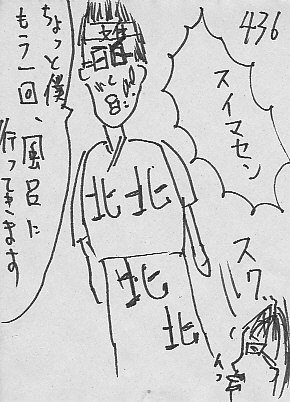 436
スイマセン
ちょっと僕、
もう一回、風呂に
行ってきます
北
北
北
北
スワ